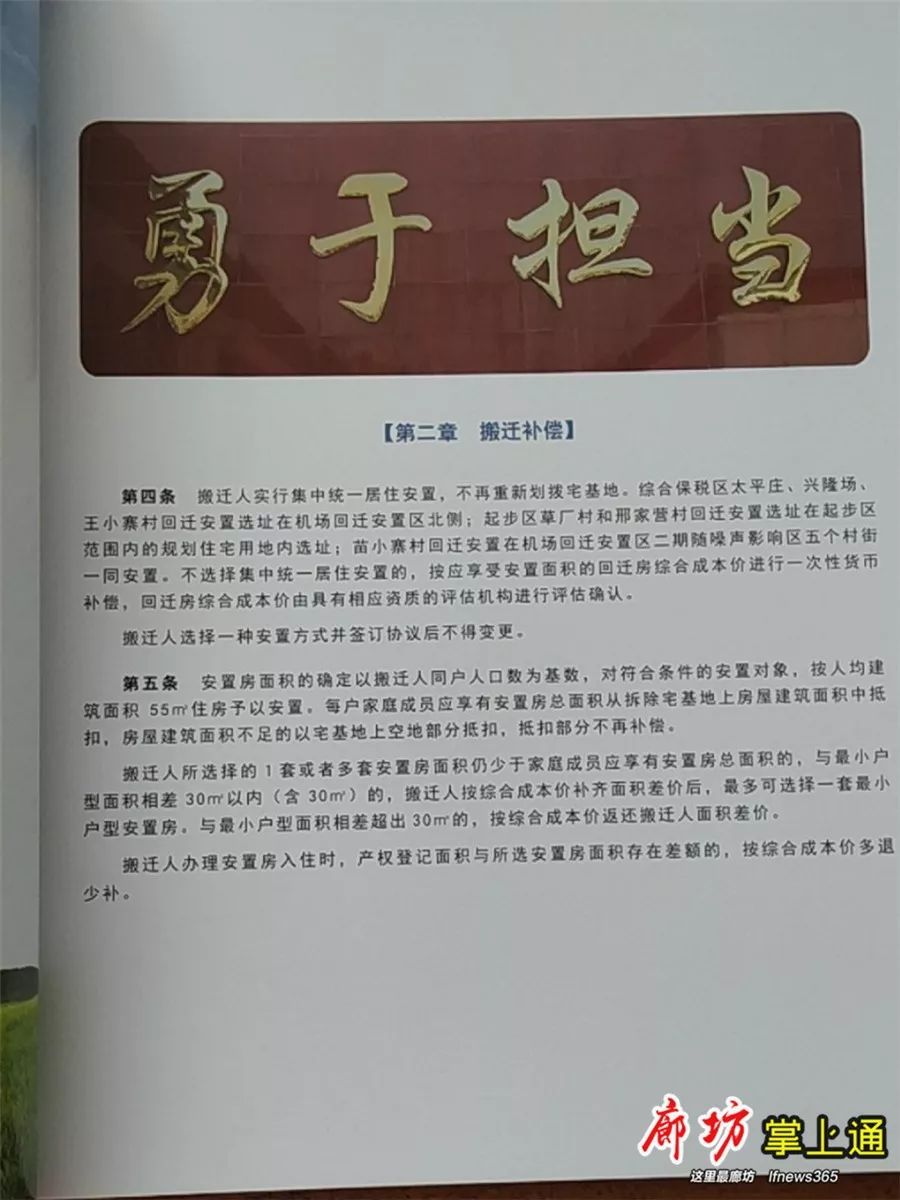 勇于担当
【第二章 搬迁补偿】
第四条 搬迁人实行集中统一居住安置，不再重新划拨宅基地。综合保税区太平庄、兴隆场、
王小寨村回迁安置选址在机场回迁安置区北侧；起步区草厂村和邢家营村回迁安置选址在起步区
范围内的规划住宅用地内选址；苗小寨村回迁安置在机场回迁安置区二期随噪声影响区五个村街
一同安置。不选择集中统一居住安置的，按应享受安置面积的回迁房综合成本价进行一次性货币
补偿，回迁房综合成本价由具有相应资质的评估机构进行评估确认。
搬迁人选择一种安置方式并签订协议后不得变更。
第五条 安置房面积的确定以搬迁人同户人口数为基数，对符合条件的安置对象，按人均建
筑面积 55㎡住房予以安置。每户家庭成员应享有安置房总面积从拆除宅基地上房屋建筑面积中抵
扣，房屋建筑面积不足的以宅基地上空地部分抵扣，抵扣部分不再补偿。
搬迁人所选择的1套或者多套安置房面积仍少于家庭成员应享有安置房总面积的，与最小户
型面积相差 30㎡以内（含 30㎡）的，搬迁人按综合成本价补齐面积差价后，最多可选择一套最小
户型安置房。与最小户型面积相差超出 30㎡的，按综合成本价返还搬迁人面积差价。
搬迁人办理安置房入住时，产权登记面积与所选安置房面积存在差额的，按综合成本价多退
少补。
廊坊 掌上通
这里最廊坊 lfnews365